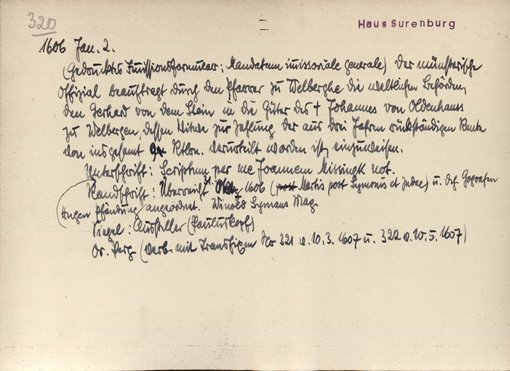 320
Haus Surenburg
1606 Jan. 2.
(Gedrucktes Immissionsformular: Mandatum immissoriale generale) Der münsterische
Offizial beauftragt durch den Pfarrer zu Welberghe die weltlichen Behörden,
den Gerhard von dem Stain in die Güter des † Johannes von Oldenhaus
zu Welbergen, dessen Witwe zur Zahlung der aus drei Jahren rückständigen Rente
von insgesamt Rtlrn. verurteilt worden ist, einzuweisen.
Unterschrift: Scriptum per me Joannem Missingk not.
Randschrift: 1606 (Martis post Symonis et Judae) u. def Gografen
Hugen Pfändung angeordnet. Winold Symans Mag.
Siegel: Aussteller (Pauluskopf)
Or. Perg. (Verb. mit Transfixen Nr 321 v. 10.3.1607 u. 322 v. 10.5.1607)